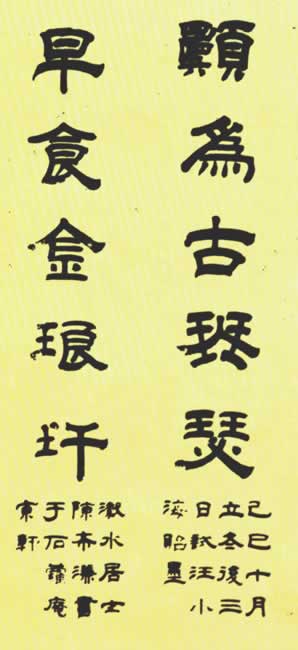 願為古瑟
早食金琅玕
己巳十月
立冬後三
日試汪小
海昭墨
水居士
陳希濂書
于石庵
軒